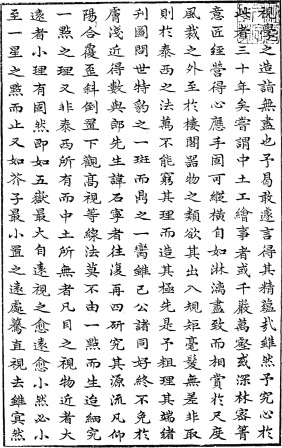 視學之造詣無盡也予曷敢遽言得其精蘊哉雖然予究心於
此者三十年矣嘗謂中土工繪事者或千巖萬壑或深林密箐
意匠經營得心應手固可縱橫自如淋漓盡致而相賞於尺度
風裁之外至於樓閣器物之類欲其出入規矩毫髮無差非取
則於泰西之法萬不能窮其理而造其極先是予粗理其端緒
刊圖問世特豹之一斑而鼎之一臠雖已公諸同好終不免於
膚淺近得數與郎先生諱石寧者往復再四研究其源流凡仰
陽合覆歪斜倒置下觀高視等線法莫不由一點而生迨細究
一點之理又非泰西所有而中土所無者凡目之視物近者大
遠者小理有固然即如五嶽最大自遠視之愈遠愈小然必小
至一星之點而止又如芥子最小置之遠處驀直視去雖冥然